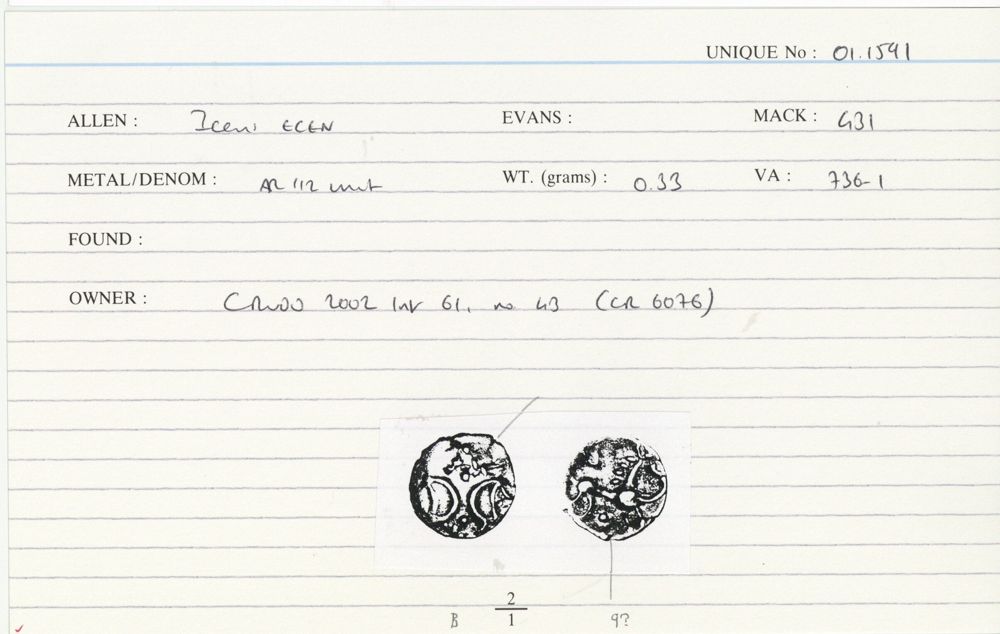 UNIQUE No : 01.1591
ALLEN : Iceni ECEN EVANS : MACK : 431
METAL/DENOM : AR 1/2 unit WT. (grams) : 0.33 VA : 736-1
FOUND :
OWNER : 2002 61, no 43 (CR 6076)
2
B 1 9?